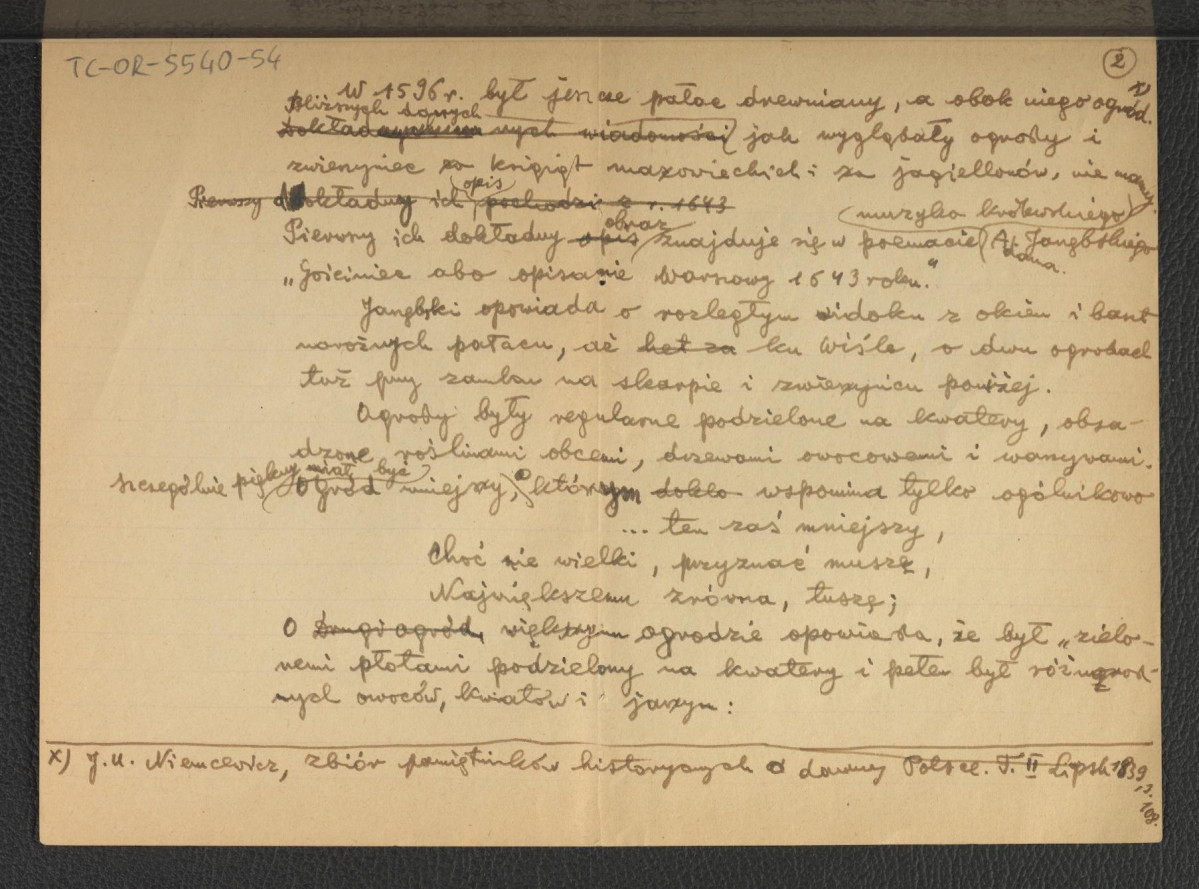 TC-OR-5540-54
2
W 1596 r. był jeszcze pałac drewniany, a obok niego ogród. x)
Bliższych danych
nych wiadomości jak wyglądały ogrody i
zwierzyniec za książąt mazowieckich i za jagiellonów, nie mamy.
opis
Pierwszy dokładny ich pochodzi z r. 1643
(muzyka królewskiego)
obraz
Pierwszy ich dokładny opis znajduje się w poemacie A. Jarzębskiego
dama.
„Gościniec abo opisanie Warszawy 1643 roku."
Jarzębski opowiada o rozległym widoku z okien i baszt
narożnych pałacu, aż het za ku Wiśle, o dwu ogrodach
tuż przy zamku na skarpie i zwierzyńcu poniżej.
Ogrody były regularne podzielone na kwatery, obsa-
dzone roślinami obcemi, drzewami owocowemi i warzywami.
Szczególnie piękny miał być
Ogród mniejszy, o którym dokło wspomina tylko ogólnikowo
... ten zaś mniejszy,
Choć nie wielki, przyznać muszę,
Największemu zrówna, tuszę;
O Drugi ogród, większym ogrodzie opowiada, że był „zielo-
nemi płotami podzielony na kwatery i pełen był różnorod-
nych owoców, kwiatów i jarzyn:
x) J. U. Niemcewicz, zbiór pamiętników historycznych o dawnej Polsce. T. II Lipsk 1839,
s. 108.